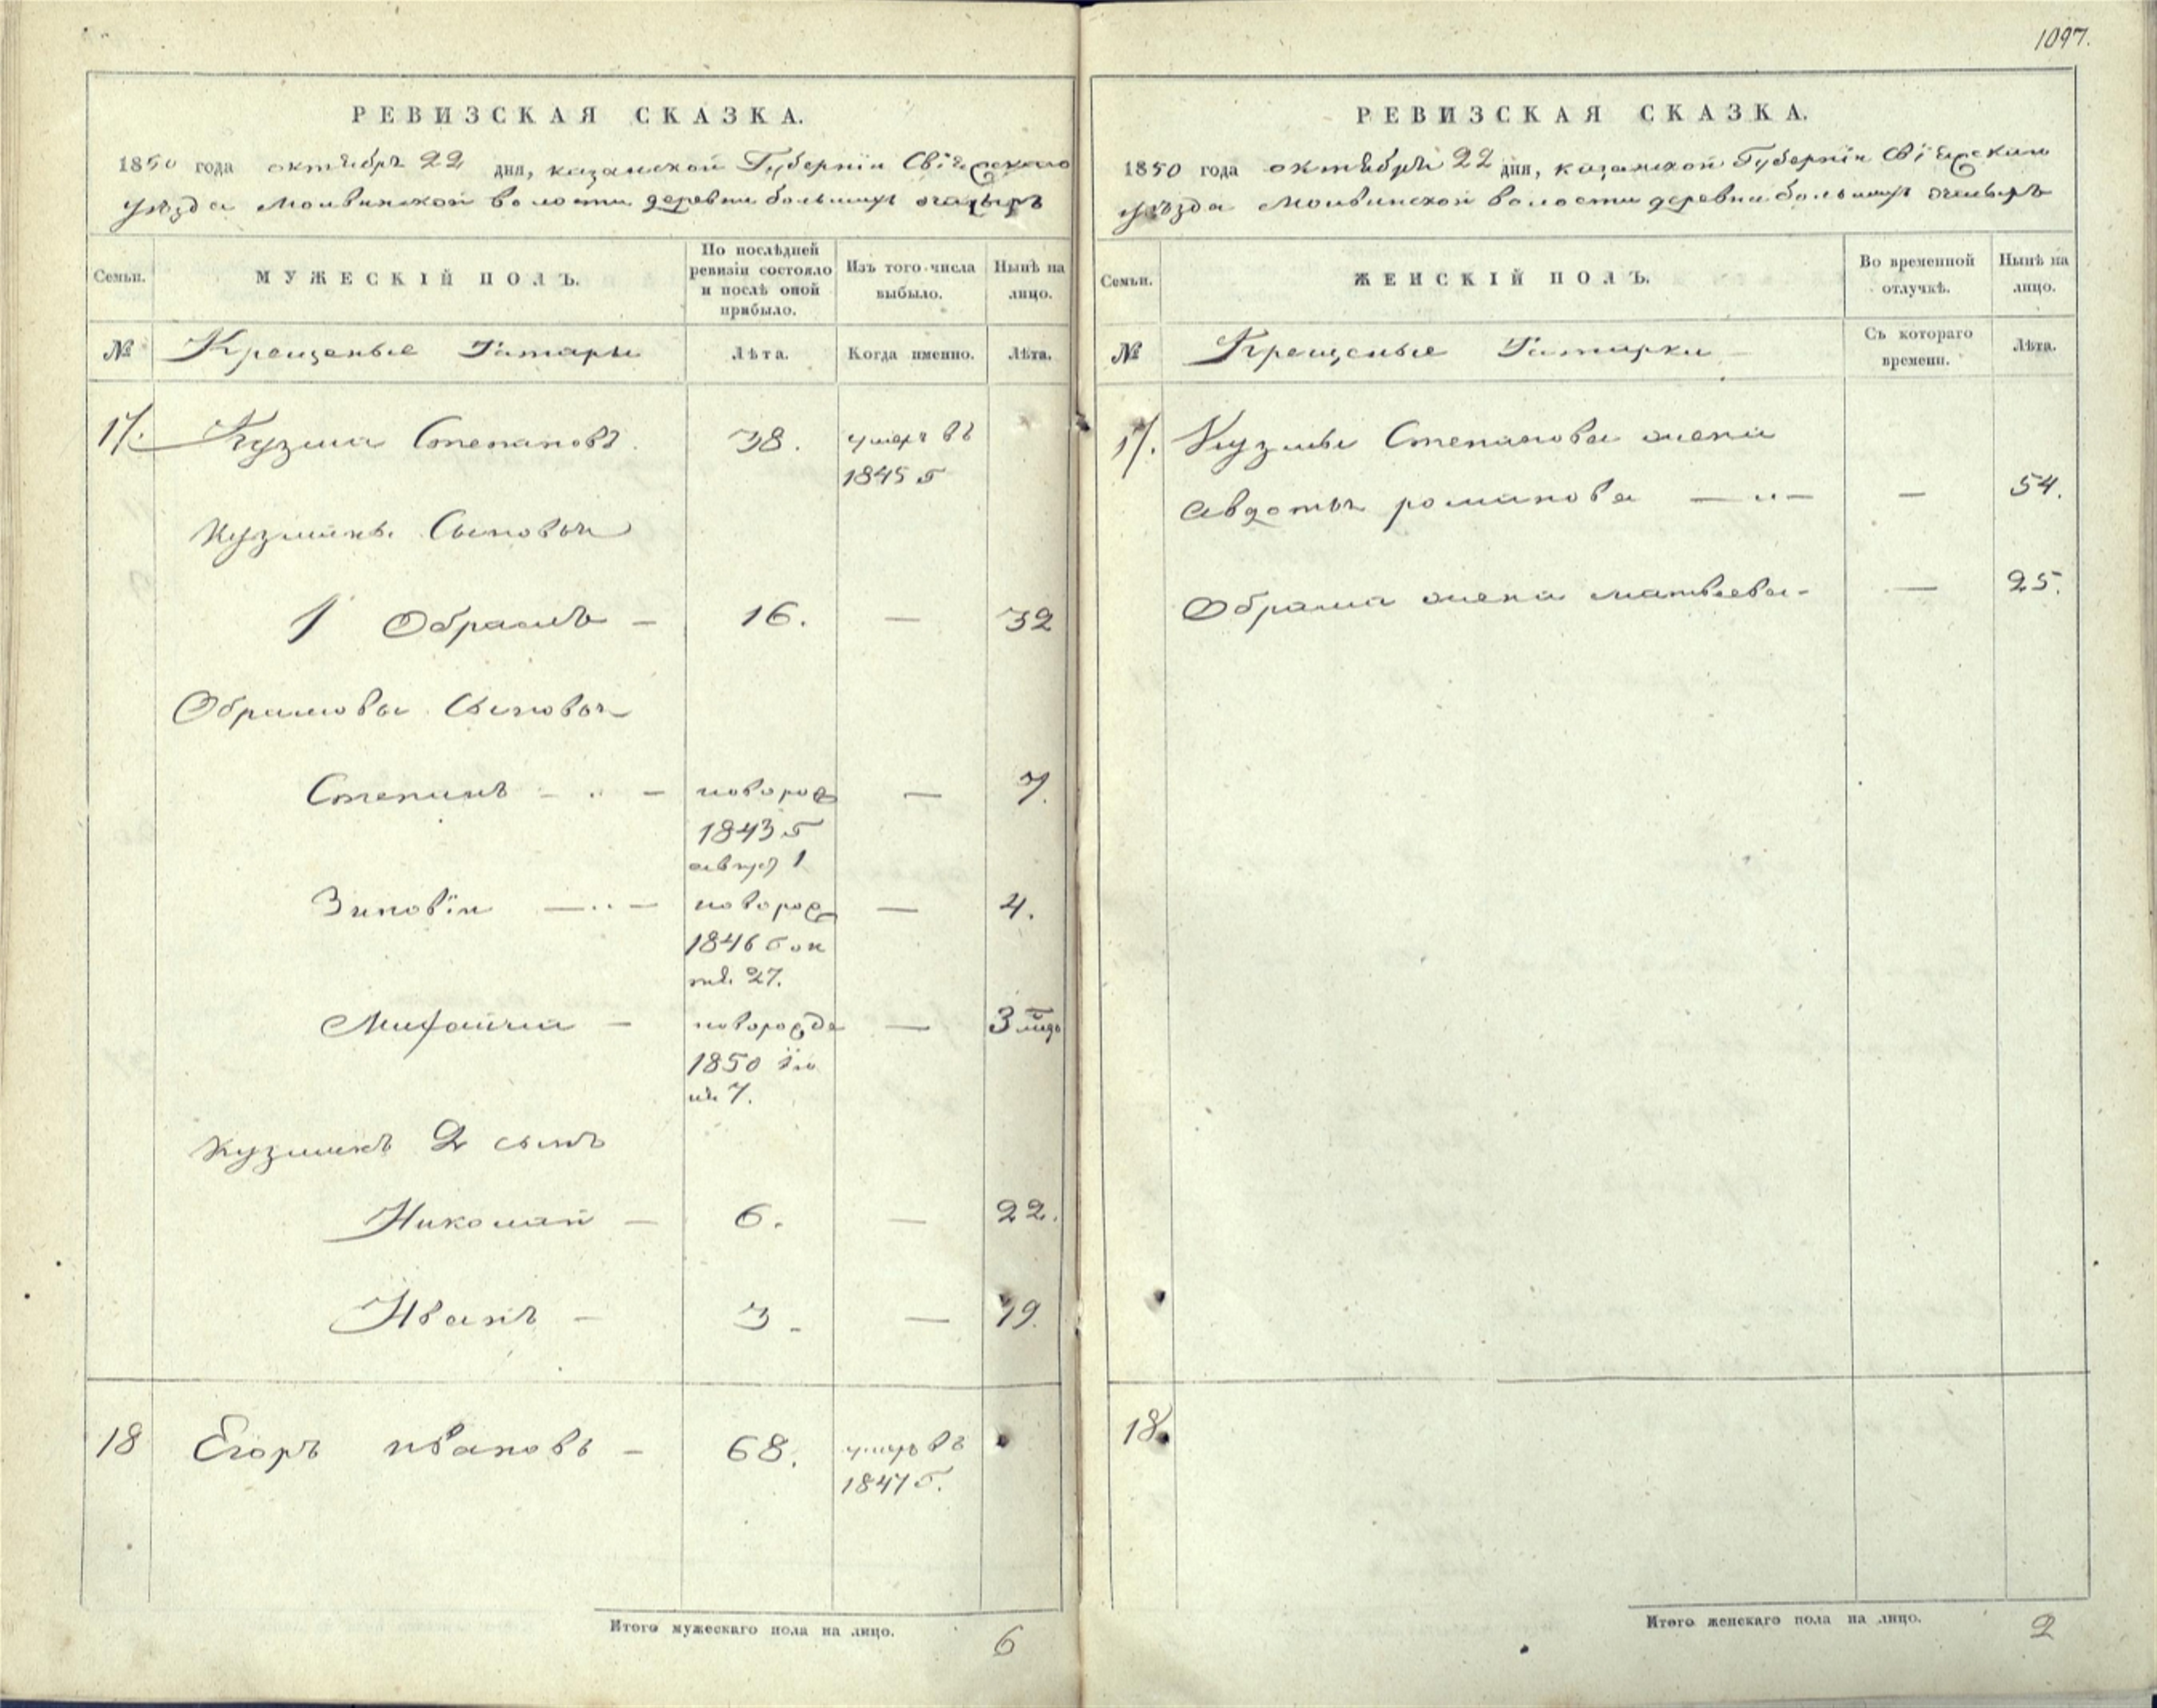 1097.
РЕВИЗСКАЯ СКАЗКА.
1850 года октября 22 дня, казанской Губерніи Свіяжскаго
уѣзда волости деревни большихъ
Семьи.
МУЖЕСКІЙ ПОЛЪ.
По послѣдней
ревизіи состояло
и послѣ оной
прибыло.
Изъ того числа
выбыло.
Нынѣ на
лицо.
№
Крещеные Татары
Лѣта.
Когда именно.
Лѣта.
17. Кузма Степановъ. 38. умеръ въ
1845 г
Кузмины Сыновья
1 Обрамъ — 16. — 32
Обрамовы Сыновья
Степанъ — новорож — 7.
1843 г
август 1
Зиновій — новорож — 4.
1846 г ок
тя. 27.
— новорожде — 3 мѣс
1850 ію
ня 7.
Кузминъ 2 сынъ
Николай — 6. — 22.
Иванъ — 3 — 19.
18 Егоръ ивановъ — 68. умеръ въ
1847 г.
Итого мужескаго пола на лицо. 6
РЕВИЗСКАЯ СКАЗКА.
1850 года октября 22 дня, казанской Губерніи Свіяжскаго
уѣзда волости деревни большихъ
Семьи.
ЖЕНСКІЙ ПОЛЪ.
Во временной
отлучкѣ.
Нынѣ на
лицо.
№
Крещеные Татарки
Съ котораго
времени.
Лѣта.
17. Кузмы Степанова жена
авдотья романова — — 54.
Обрама жена матвѣева — 25.
18.
Итого женскаго пола на лицо. 2